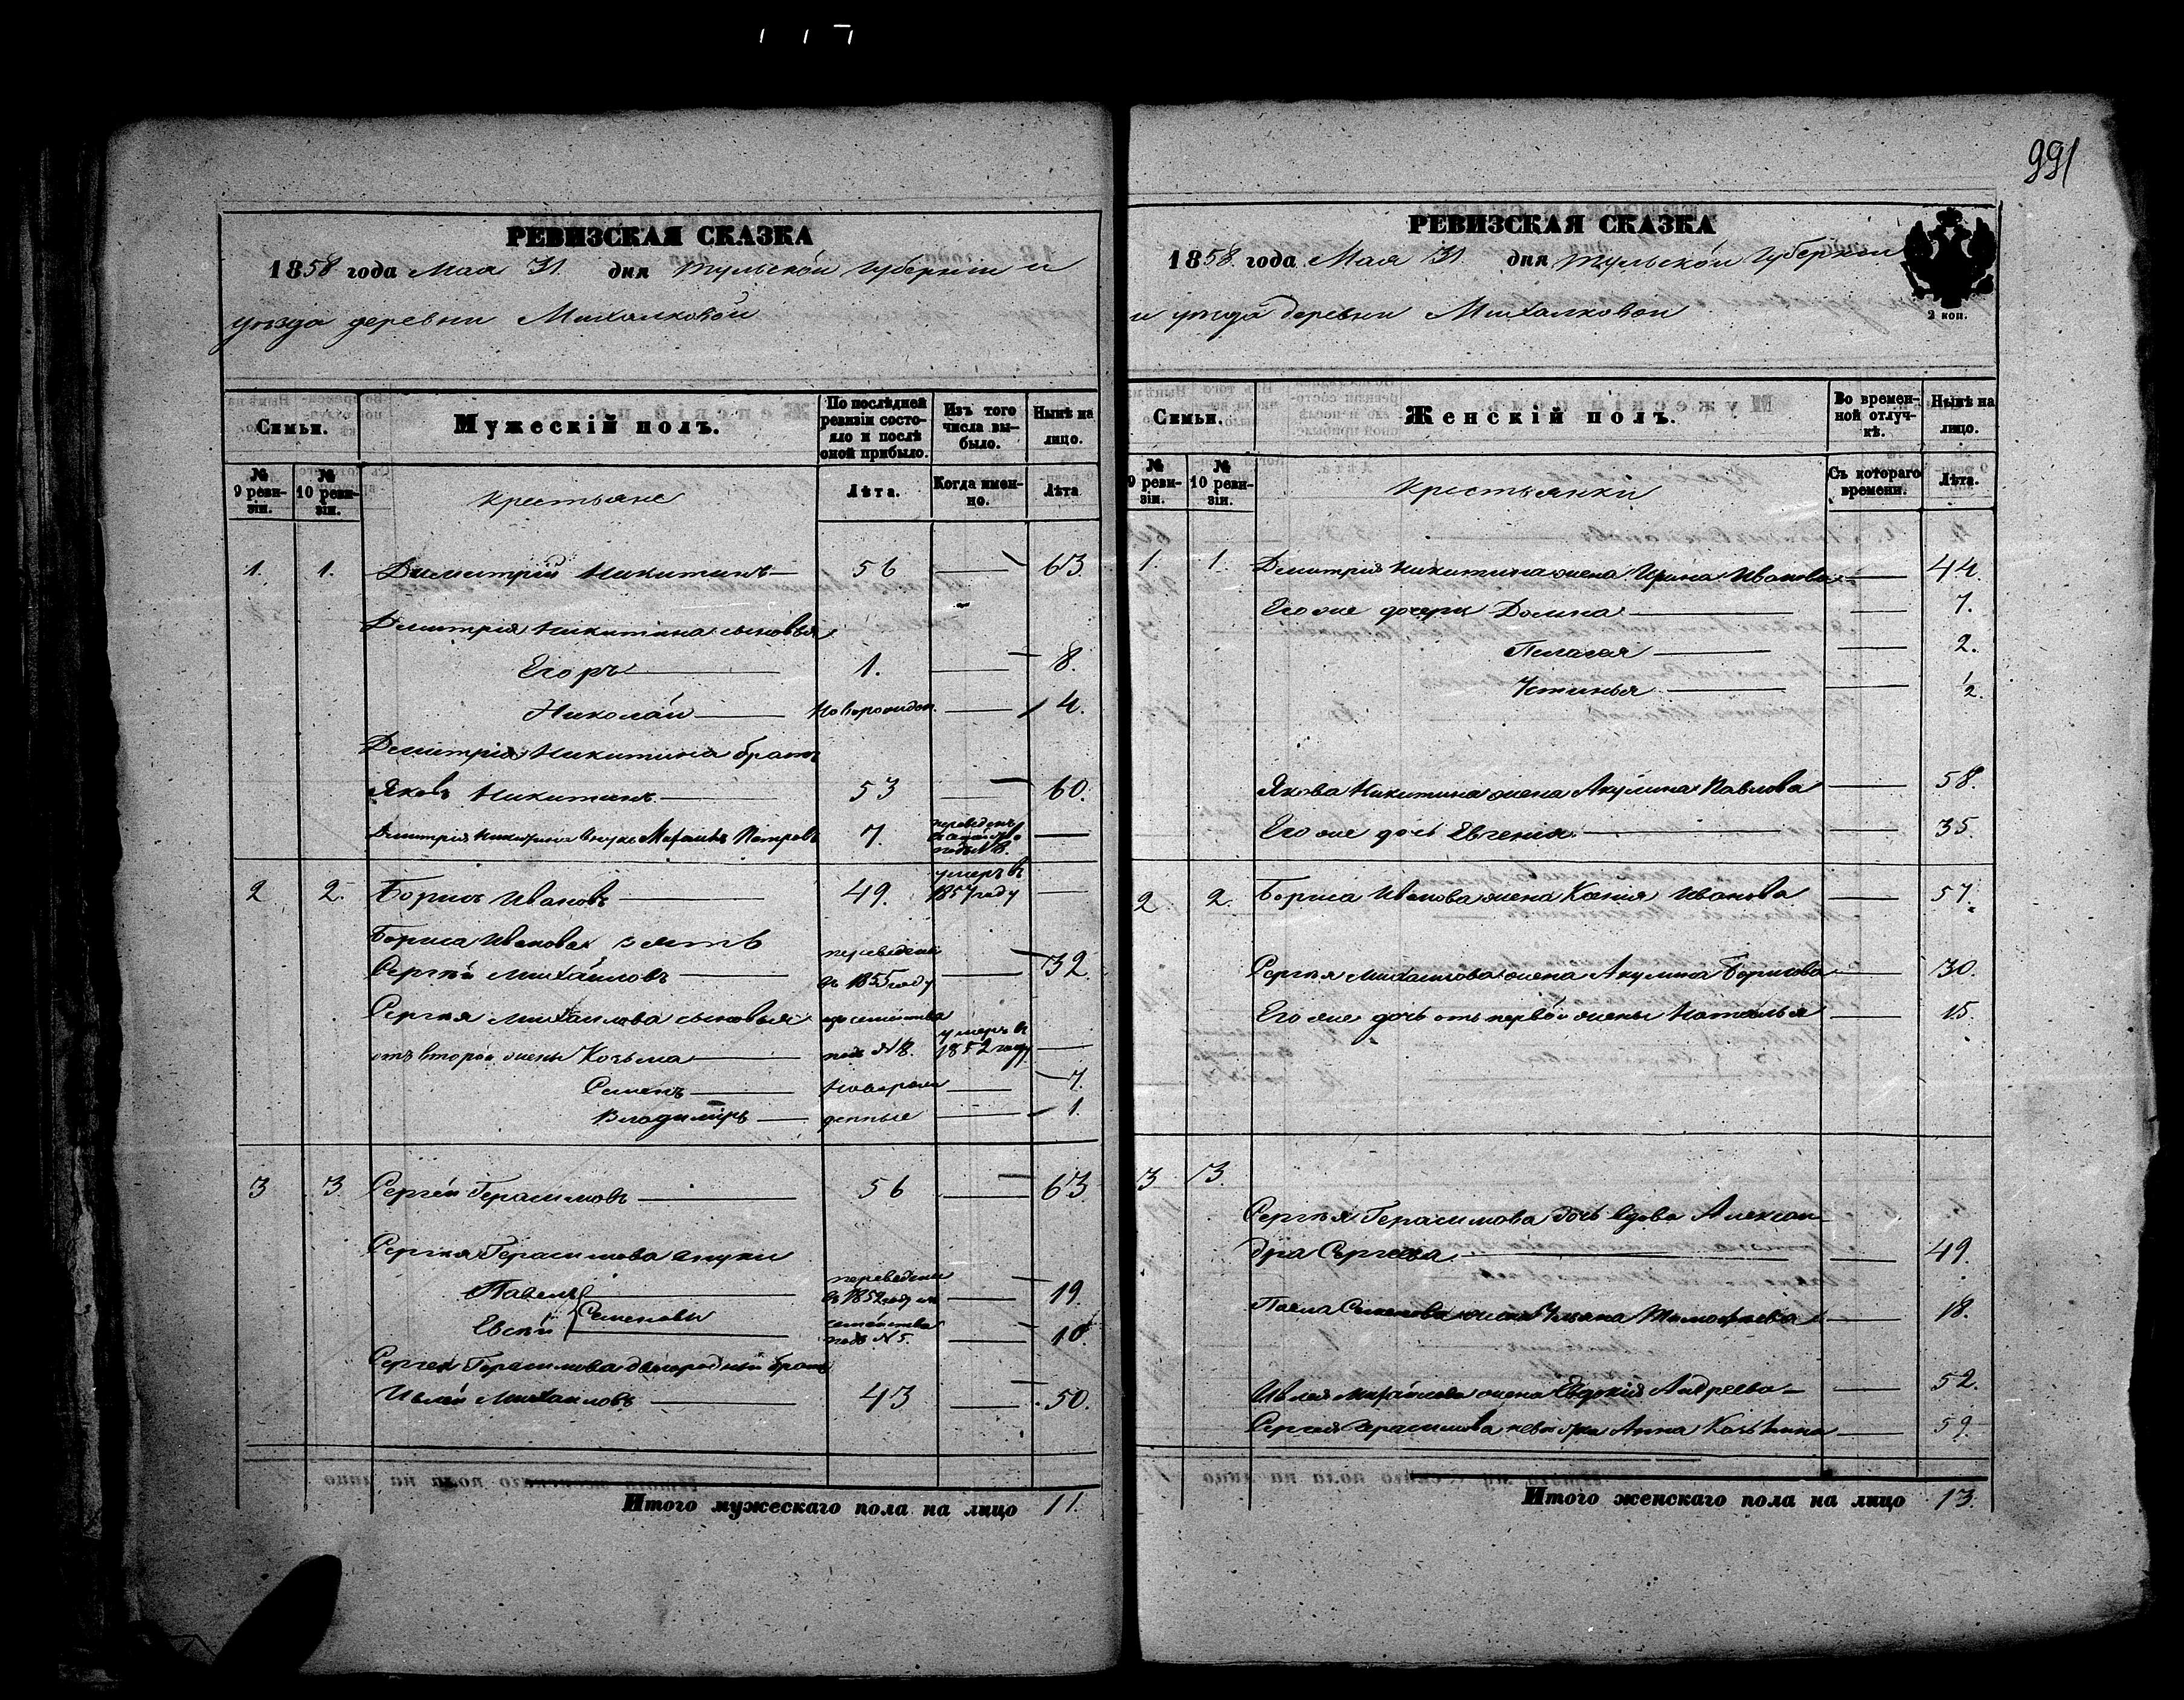 991
РЕВИЗСКАЯ СКАЗКА
1858 года Мая 31 дня Тульской Губерніи и
уѣзда деревни Михалковой
Семьи.
Мужескій полъ.
По послѣдней ревизіи состояло и послѣ оной прибыло.
Изъ того числа выбыло.
Нынѣ на лицо.
№ 9 ревизіи.
№ 10 ревизіи.
крестьяне
Лѣта.
Когда именно.
Лѣта
1. 1. Димитрій Никитинъ 56 63
Дмитрія Никитина сыновья
Егоръ 1. 8.
Николай новорожден. 4.
Дмитрія Никитина братъ
Яковъ Никитинъ 53 60.
Дмитрія Никитина внукъ Петровъ 7. переведенъ подъ №8.
2 2. Борисъ Ивановъ 49. умеръ в 1857 году
Бориса Иванова зять
Сергѣй Михайловъ переведены въ 1855 году 32
Сергѣя Михайлова сыновья семейства
отъ второй жены Козьма подъ №8. умеръ в 1852 году
Семенъ новорож 7.
Владиміръ денные 1.
3 3 Сергѣй Герасимовъ 56 63
Сергѣя Герасимова внуки
Павелъ переведены въ 1852 году из 19.
Семеновы
Евсѣй семейства подъ №5. 10.
Сергея Герасимова двоюродный братъ
Ивлей Михайловъ 43 50.
Итого мужескаго пола на лицо 11.
РЕВИЗСКАЯ СКАЗКА
1858. года Мая 31 дня Тульской Губерніи
и уѣзда деревни Михалковой
2 коп.
Семьи.
Женскій полъ.
Во временной отлучкѣ.
Нынѣ на лицо.
№ 9 ревизіи.
№ 10 ревизіи.
крестьянки
Съ котораго времени.
Лѣта.
1. 1. Дмитрія Никитина жена Ирина Иванова 44.
Его же дочери Домна 7.
Пелагея 2.
Устинья ½.
Якова Никитина жена Акулина Павлова 58.
Его же дочь Евгенія 35
2 2. Бориса Иванова жена Ксенія Иванова 57.
Сергѣя Михайлова жена Акулина Борисова 30.
Его же дочь отъ первой жены Наталья 15.
3 3.
Сергѣя Герасимова дочь вдова Алексан
дра Сергеева 49.
Павла Семенова жена Ульяна Тимофѣева 18.
Ивлея Михайлова жена Евдокія Андреева 52.
Сергея Герасимова невѣстка Анна 59.
Итого женскаго пола на лицо 13.